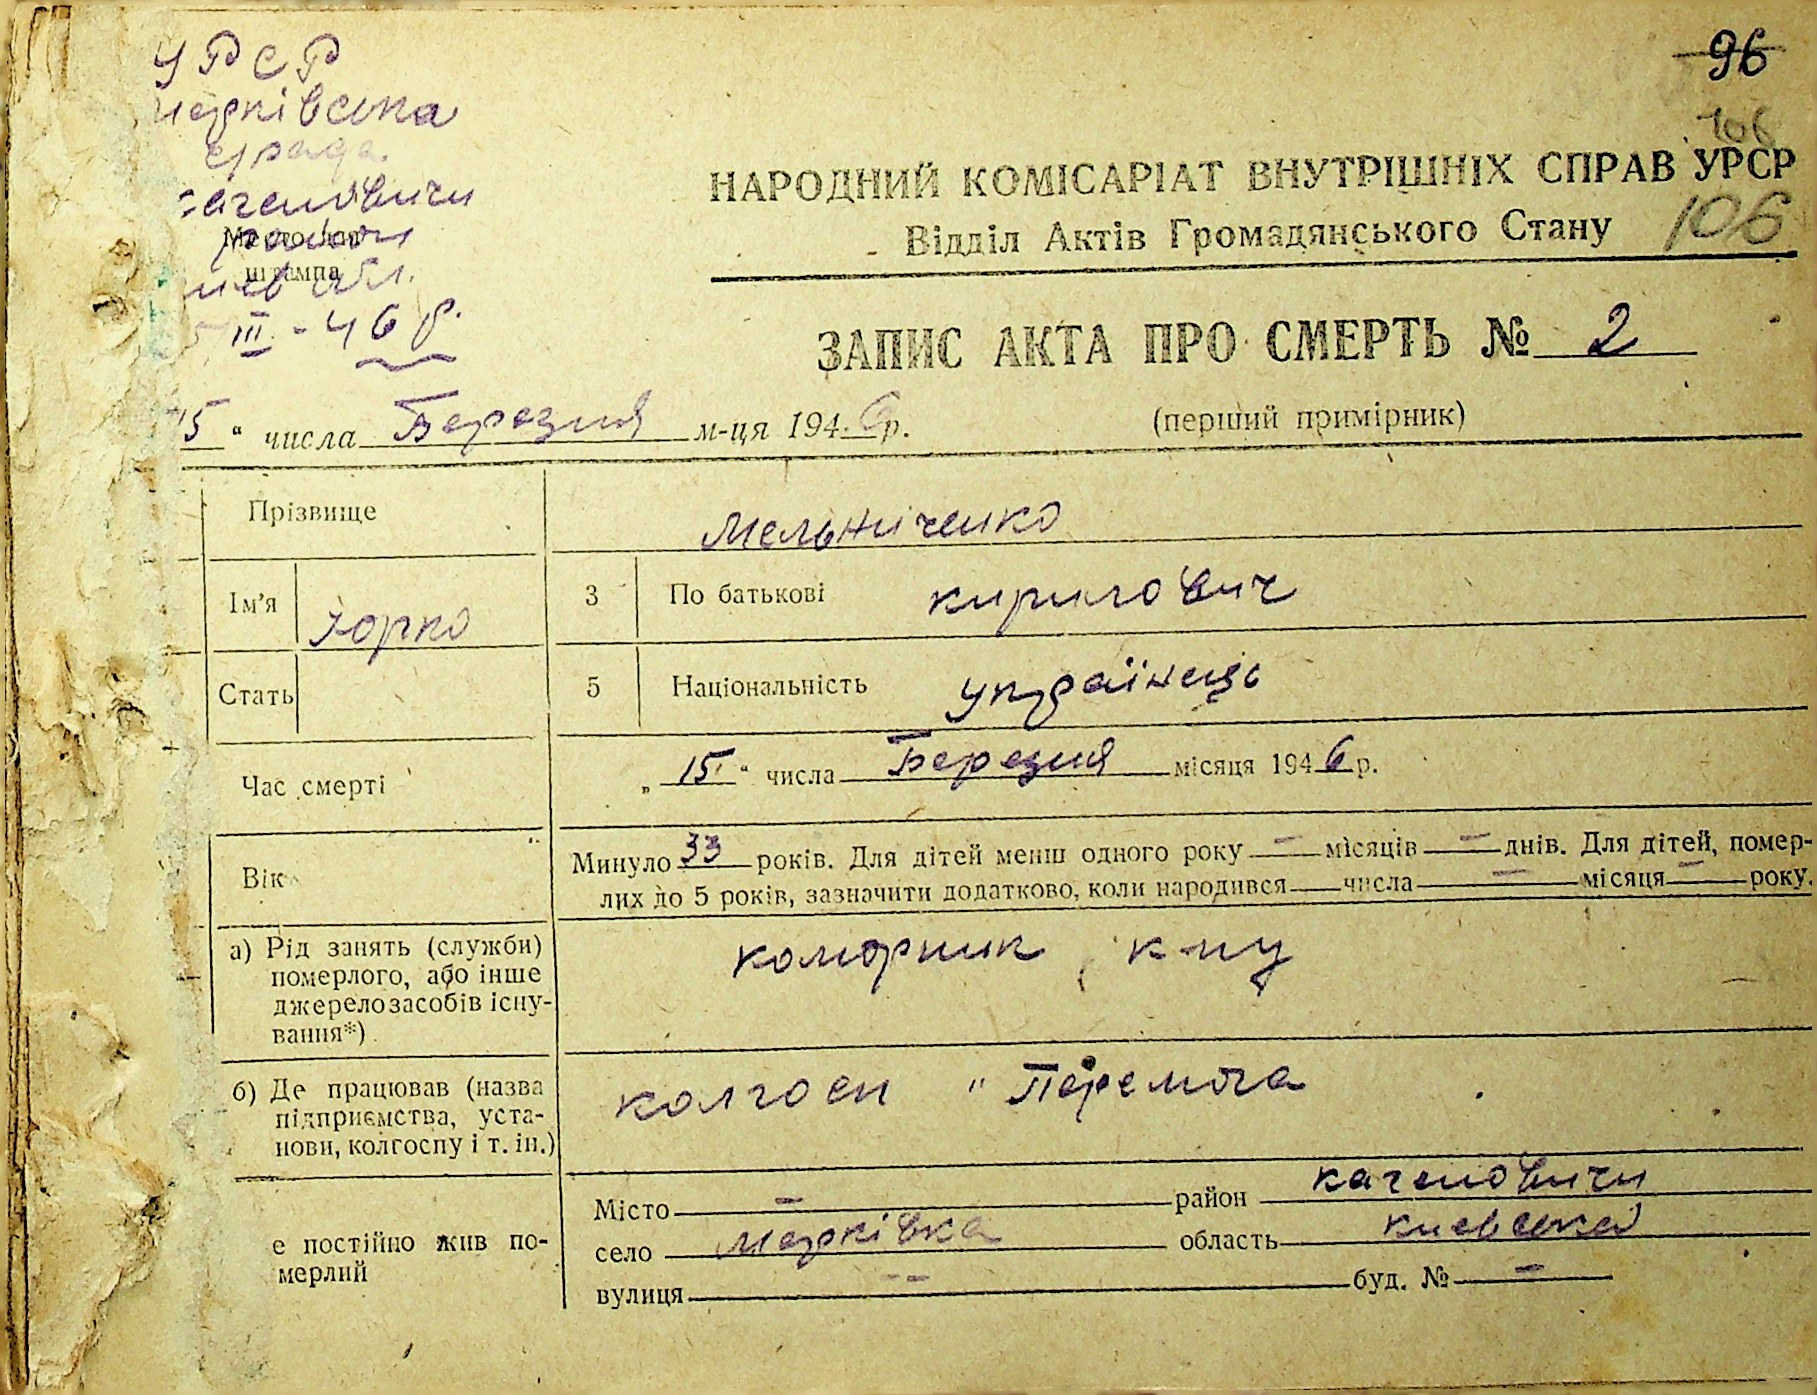 96
106
УРСР
Марківська
с/рада
Кагановичи
район
Місце для
штампа
Киев обл.
15 III - 46 р.
НАРОДНИЙ КОМІСАРІАТ ВНУТРІШНІХ СПРАВ УРСР
Відділ Актів Громадянського Стану 106
ЗАПИС АКТА ПРО СМЕРТЬ № 2
15 " числа Березня м-ця 1946 р. (перший примірник)
Прізвище Мельниченко
Ім'я Юрко 3 По батькові Кирилович
Стать 5 Національність українець
Час смерті „ 15 " числа Березня місяця 1946 р.
Вік Минуло 33 років. Для дітей менш одного року — місяців — днів. Для дітей, помер-
лих до 5 років, зазначити додатково, коли народився — числа — місяця — року.
а) Рід занять (служби)
померлого, або інше
джерело засобів існу-
вання*)
коморник, к-пу
б) Де працював (назва
підприємства, уста-
нови, колгоспу і т. ін.)
колгосп "Перемога
е постійно жив по-
мерлий
Місто — район Кагановичи
село Марківка область Киевська
вулиця — буд. № —